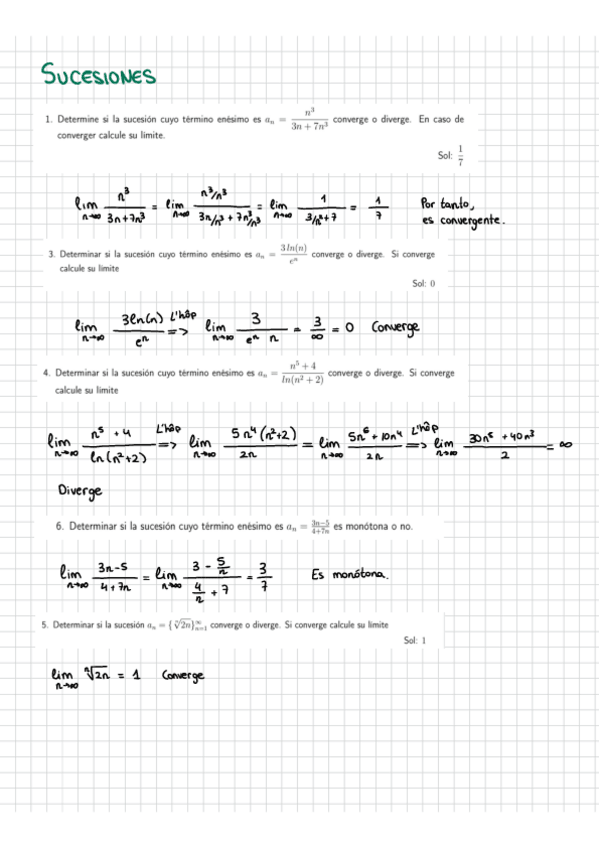 SUCESIONES
1. Determine si la sucesión cuyo término enésimo es a_n = n^3/(3n + 7n^3) converge o diverge. En caso de
converger calcule su límite.
Sol: 1/7
lim n→∞ n^3/(3n+7n^3) = lim n→∞ (n^3/n^3)/(3n/n^3 + 7n^3/n^3) = lim n→∞ 1/(3/n^2+7) = 1/7 Por tanto,
es convergente.
3. Determinar si la sucesión cuyo término enésimo es a_n = 3 ln(n)/e^n converge o diverge. Si converge
calcule su límite
Sol: 0
lim n→∞ 3ln(n)/e^n L'hôp => lim n→∞ 3/(e^n n) = 3/∞ = 0 Converge
4. Determinar si la sucesión cuyo término enésimo es a_n = (n^5 + 4)/ln(n^2 + 2) converge o diverge. Si converge
calcule su límite
lim n→∞ (n^5 + 4)/ln(n^2+2) L'hôp => lim n→∞ 5n^4(n^2+2)/2n = lim n→∞ (5n^6 + 10n^4)/2n L'hôp => lim n→∞ (30n^5 + 40n^3)/2 = ∞
Diverge
6. Determinar si la sucesión cuyo término enésimo es a_n = (3n−5)/(4+7n) es monótona o no.
lim n→∞ (3n-5)/(4+7n) = lim n→∞ (3 - 5/n)/(4/n + 7) = 3/7 Es monótona.
5. Determinar si la sucesión a_n = {ⁿ√2n}_{n=1}^∞ converge o diverge. Si converge calcule su límite
Sol: 1
lim n→∞ ⁿ√2n = 1 Converge